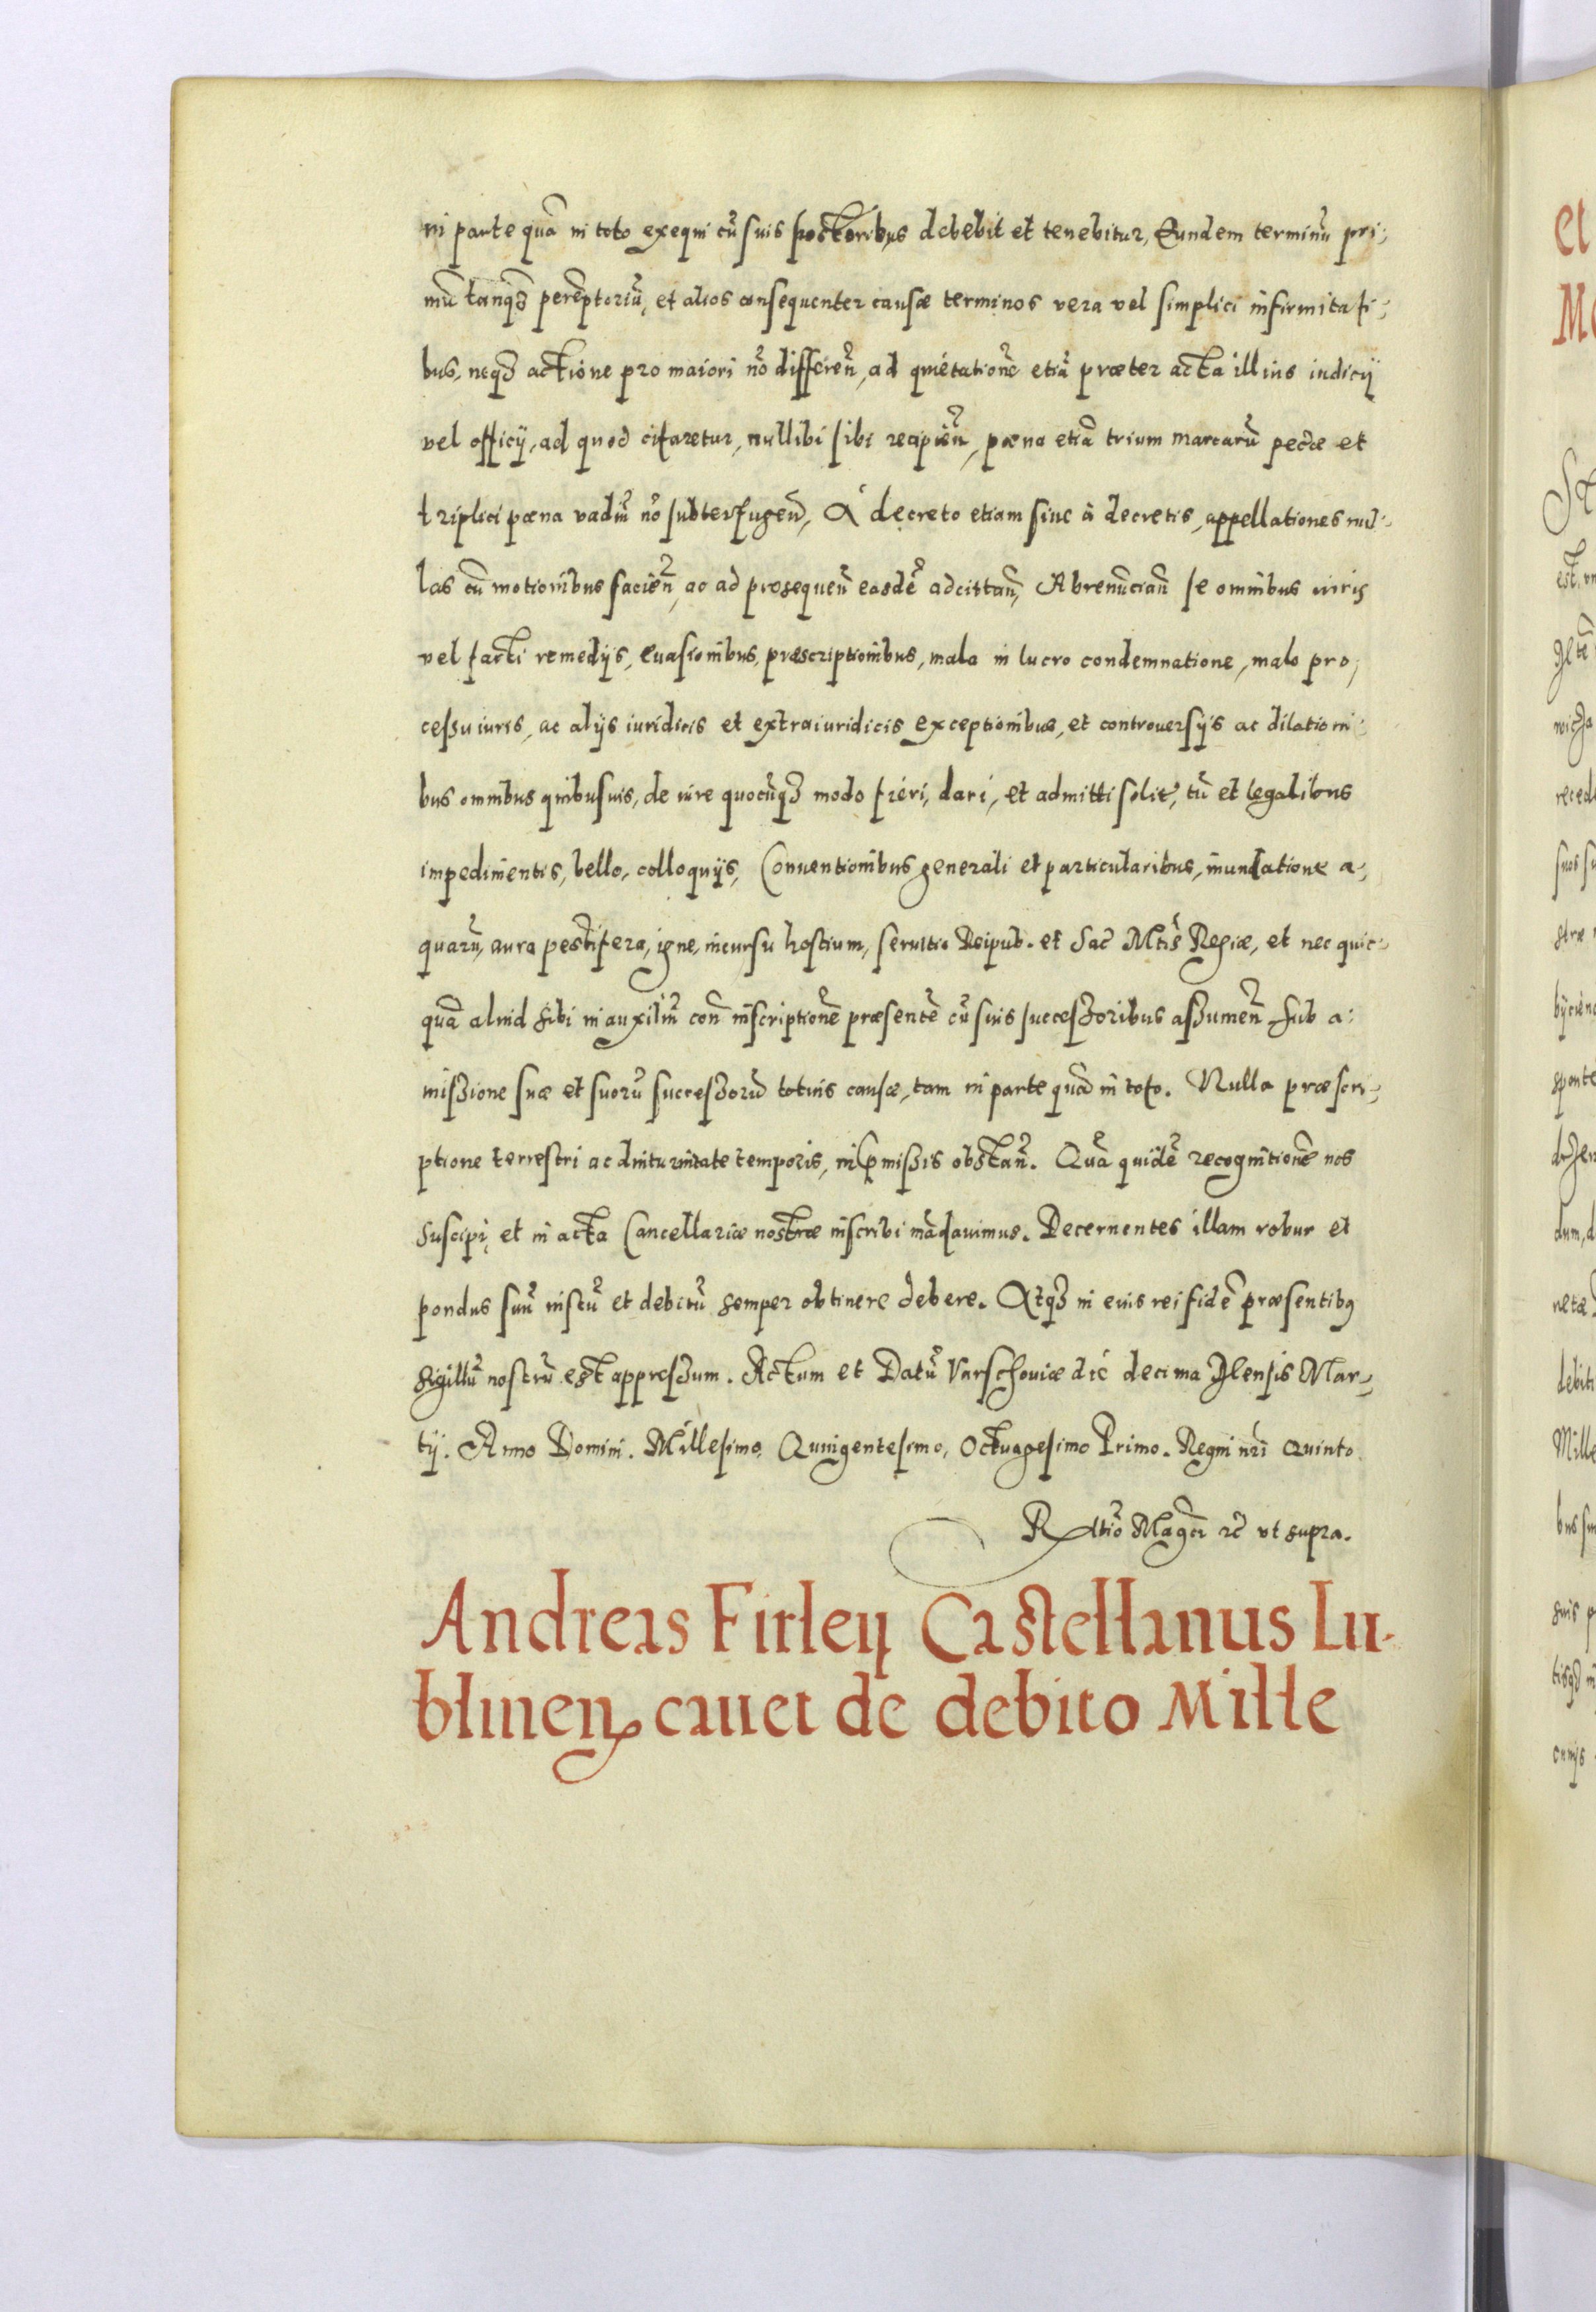 in parte quā in toto exequi cū suis posteribus debebit et tenebitur, Eundem terminū pri;
mū tanq̃ȝ perēptoriū, et alios consequenter causæ terminos vera vel simplici infirmitati;
bus, neqȝ actione pro maiori nō differeñ, ad quietationē etiā præter acta illius iudicij
vel officij, ad quod citaretur, nullibi sibi recipieñ, pæna etiā trium marcarū peccæ et
triplici pæna vadiū nō subterfugeñ, A' decreto etiam siue à decretis, appellationes nul;
las cū motionibus facieñ, ac ad prosequeñ easdē adcittañ, Abrenunciañ se omnibus iuris
vel facti remedijs, euasionibus, præscriptionibus, mala in lucro condemnatione, malo pro;
cessu iuris, ac alijs iuridicis et extraiuridicis exceptionibus, et controuersijs ac dilationi;
bus omnibus quibusuis, de iure quocūqȝ modo fieri, dari, et admitti solit', tū et legalibus
impedimentis, bello, colloquijs, Conuentionibus generali et particularibus, inundatione a;
quarū, aura pestifera, igne, incursu hostium, seruitio Reipub. et Sac̃ Mtis Regiæ, et nec quic;
quā aliud sibi in auxiliū con̄ inscriptionē præsentē cū suis successoribus assumeñ sub a:
missione suæ et suorū successorū totius causæ, tam in parte quā in toto. Nulla præscri;
ptione terrestri ac diuturnitate temporis, in p̱missis obstañ. Quā quidē recognitionē nos
suscipi, et in acta Cancellariæ nostræ inscribi mādauimus. Decernentes illam robur et
pondus suū iustū et debitū semper obtinere debere. Atqȝ in euis rei fidē præsentibꝰ
sigillū nostrū est appressum. Actum et Datū Varschouiæ die decima Mensis Mar;
tij. Anno Domini. Millesimo, Quingentesimo, Octuagesimo Primo. Regni nr̄i Quinto.
R̃ltio Magci &c̃ vt supra.
Andreas Firleij Castellanus Lu-
blineñ cauet de debito Mille